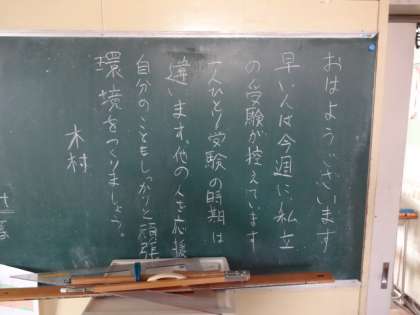 おはようございます
早い人は今週に私立
の受験が控えています
一人ひとり受験の時期は
違います。他の人を応援
自分のこともしっかりと頑張
環境をつくりましょう。
木村